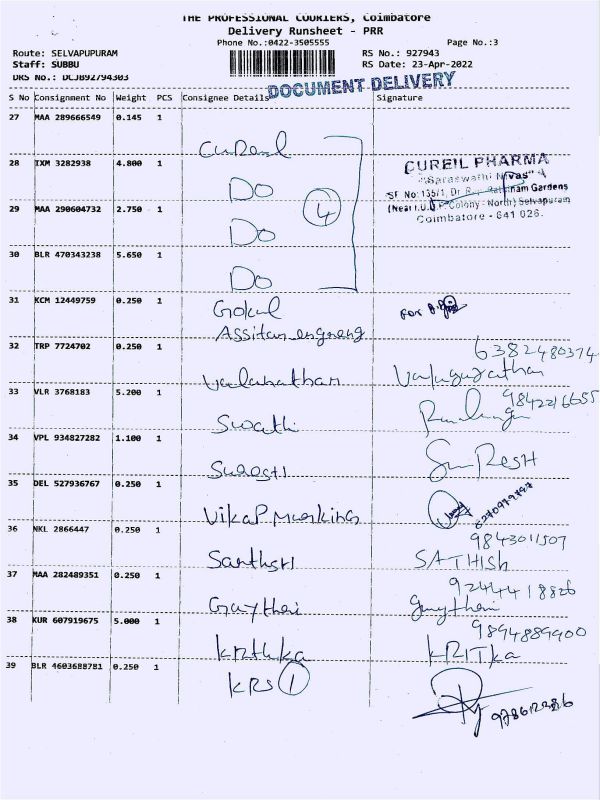 THE PROFESSIONAL COURIERS, Coimbatore
Delivery Runsheet - PRR
Phone No.:0422-3505555
Page No.:3
Route: SELVAPUPURAM
RS No.: 927943
Staff: SUBBU
RS Date: 23-Apr-2022
DRS No.: DCJB92794303
DOCUMENT DELIVERY
S No Consignment No Weight PCS Consignee Details Signature
27 MAA 289666549 0.145 1
Cureil
28 IXM 3282938 4.800 1
Do
CUREIL PHARMA
"Saraswathi Nivas"
SF No: 135/1, Dr. Gardens
Colony - North) Selvapuram
Coimbatore - 641 026.
4
29 MAA 290604732 2.750 1
Do
30 BLR 470343238 5.650 1
Do
31 KCM 12449759 0.250 1
Gokul
For
Assitan
32 TRP 7724702 0.250 1
6382480374
33 VLR 3768183 5.200 1
9842216655
Swathi
34 VPL 934827282 1.100 1
SuResH
35 DEL 527936767 0.250 1
36 NKL 2866447 0.250 1
9843011507
SATHISh
37 MAA 282489351 0.250 1
9244418826
Gaythri
38 KUR 607919675 5.000 1
9894889900
Krithka
KRITka
39 BLR 4603688781 0.250 1
KRS 1